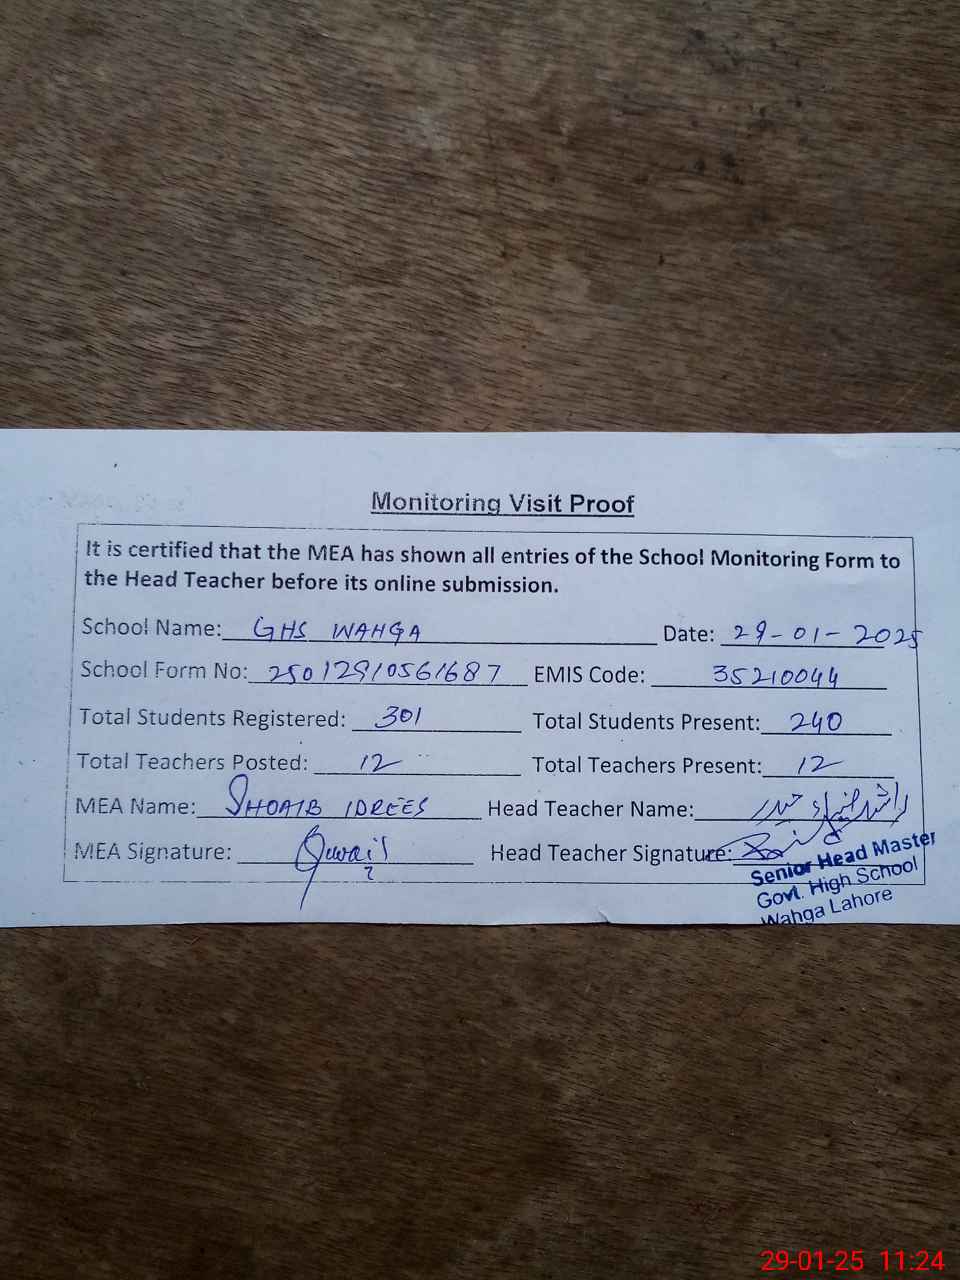 Monitoring Visit Proof
It is certified that the MEA has shown all entries of the School Monitoring Form to
the Head Teacher before its online submission.
School Name: GHS WAHGA Date: 29-01-2025
School Form No: 25012910561687 EMIS Code: 35210044
Total Students Registered: 301 Total Students Present: 240
Total Teachers Posted: 12 Total Teachers Present: 12
MEA Name: SHOAIB IDREES Head Teacher Name:
MEA Signature: Head Teacher Signature:
Senior Head Master
Govt. High School
Wahga Lahore
29-01-25 11:24